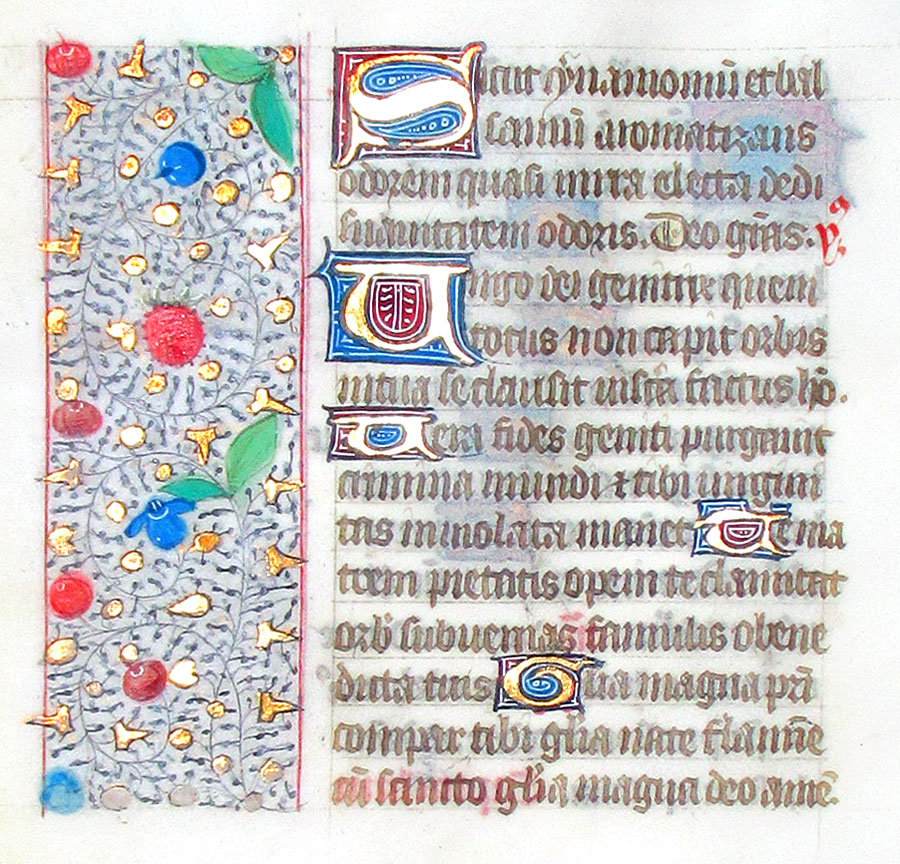 Sicut cynamomū et bal
samū aromatizans
odorem quasi mirra electa dedi
suauitatem odoris. Deo grās. ps̄.
Uirgo dei genitrix quem
totus non capit orbis
in tua se clausit uiscīa factus hō.
Uera fides geniti purgauit
crimina mundi ⁊ tibi uirgini
tas inuiolata manet Te ma
trem pietatis opem te clamitat
orb' subuenias famulis o bene
dicta tuis Glīa magna pr̄i
compar tibi glīa nate flamīe
cū sancto glīa magna deo amē.